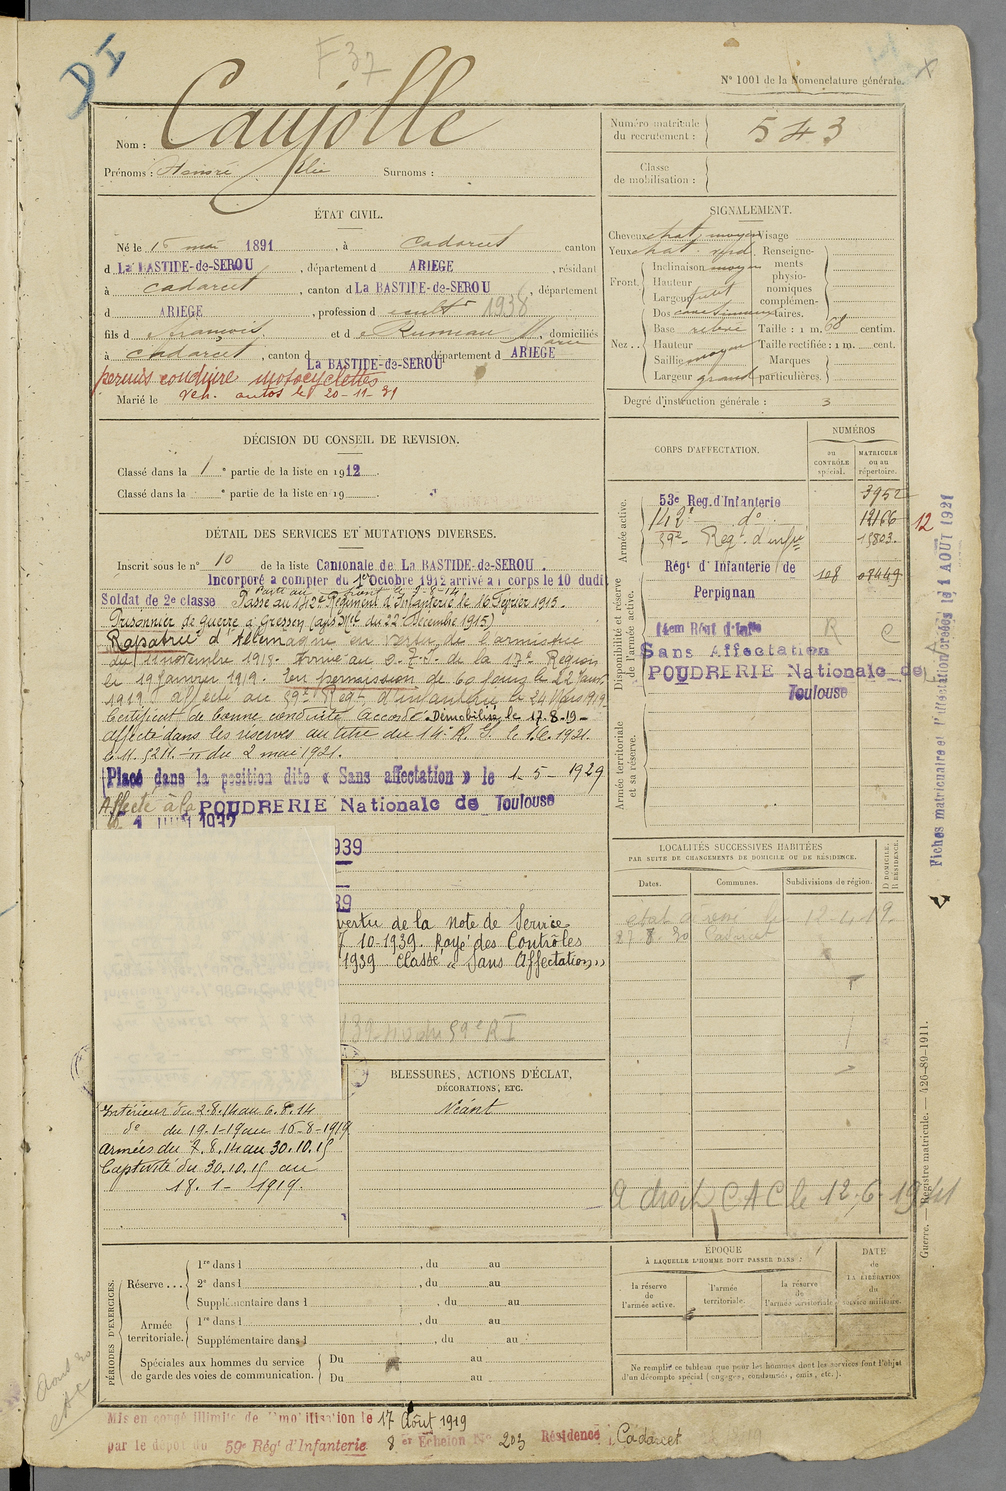 DI
F 37
N° 1001 de la Nomenclature générale.
Nom : Caujolle
Prénoms : Honoré Elie Surnoms :
Numéro matricule du recrutement : 543
Classe de mobilisation :
ÉTAT CIVIL.
Né le 15 mai 1891, à Cadarcet canton
d La BASTIDE-de-SEROU, département d ARIEGE, résidant
à Cadarcet, canton d La BASTIDE-de-SEROU, département
d ARIEGE, profession de cultr 1938
fils d François et de Rumeau Marie, domiciliés
à Cadarcet, canton d La BASTIDE-de-SEROU département d ARIEGE
permis conduire motocyclettes
Marié le Veh. autos le 20-11-31
SIGNALEMENT.
Cheveux chat. moyen Visage
Yeux chat.
Front. Inclinaison moyen
Hauteur
Largeur
Nez . . Dos
Base relevé
Hauteur
Saillie moyen
Largeur grand
Renseignements physionomiques complémentaires.
Taille : 1 m. 68 centim.
Taille rectifiée : 1 m. cent.
Marques particulières.
Degré d'instruction générale : 3
DÉCISION DU CONSEIL DE REVISION.
Classé dans la 1 e partie de la liste en 1912.
Classé dans la e partie de la liste en 19
DÉTAIL DES SERVICES ET MUTATIONS DIVERSES.
Inscrit sous le n° 10 de la liste Cantonale de La BASTIDE-de-SEROU.
Incorporé à compter du 1er Octobre 1912 arrivé au corps le 10 dudit
Parti au front le 7-8-14
Soldat de 2e classe Passé au 142e Régiment d'Infanterie le 16 Février 1915.
Prisonnier de guerre à Giessen (avis Mel du 22 Décembre 1915)
Rapatrié d'Allemagne en vertu de l'armistice
du 11 novembre 1918. Arrivé au D.T.I. de la 17e Région
le 19 Janvier 1919. En permission de 60 jours le 22 Janv.
1919. Affecté au 59e Regt d'infanterie le 24 Mars 1919.
Certificat de bonne conduite accordé. Démobilisé le 17-8-19-
Affecté dans les réserves au titre du 14e R. I. le 1.6.1921.
C.M. 5211. du 2 mai 1921.
Placé dans la position dite « Sans affectation » le 1-5-1929
Affecté à la POUDRERIE Nationale de Toulouse
le 1 JUIN 1932
939
39
vertu de la note de Service
10-1939. Rayé des Contrôles
1939 Classé "Sans Affectation"
CORPS D'AFFECTATION.
NUMÉROS
au CONTRÔLE spécial.
MATRICULE ou au répertoire.
Armée active.
53e Reg. d'Infanterie 3952
142e do 12166
59e Regt d'infrie 15803
Disponibilité et réserve de l'armée active.
Régt d'Infanterie de Perpignan 108 08449
14em Régt d'Infie R C
Sans Affectation
POUDRERIE Nationale de
Toulouse
Armée territoriale et sa réserve.
12
Fiches matriculaire et d'affectation créées le 1 AOUT 1921
LOCALITÉS SUCCESSIVES HABITÉES
PAR SUITE DE CHANGEMENTS DE DOMICILE OU DE RÉSIDENCE.
Dates. Communes. Subdivisions de région. D DOMICILE. R RÉSIDENCE.
12-4-19.
27.8.20 Cadarcet
Intérieur du 2.8.14 au 6.8.14
do du 19.1-19 au 16-8-1919
Armées du 7.8.14 au 30.10.15
Captivité du 30.10.15 au
18.1-1919.
BLESSURES, ACTIONS D'ÉCLAT, DÉCORATIONS, ETC.
Néant
A droit CAC le 12-6-1941
PÉRIODES D'EXERCICES.
Réserve . . . 1re dans l , du au
2e dans l , du au
Supplémentaire dans l , du au
Armée territoriale. 1re dans l , du au
Supplémentaire dans l , du au
Spéciales aux hommes du service de garde des voies de communication. Du au
Du au
ÉPOQUE
À LAQUELLE L'HOMME DOIT PASSER DANS :
la réserve de l'armée active.
l'armée territoriale.
la réserve de l'armée territoriale
DATE de LA LIBÉRATION du service militaire.
Ne remplir ce tableau que pour les hommes dont les services font l'objet
d'un décompte spécial (engagés, condamnés, omis, etc.).
Guerre. — Registre matricule. — 426-89-1911.
Mis en congé illimité de démobilisation le 17 Août 1919
par le dépôt du 59e Régt d'Infanterie 8 er Echelon No 203 Résidence : Cadarcet